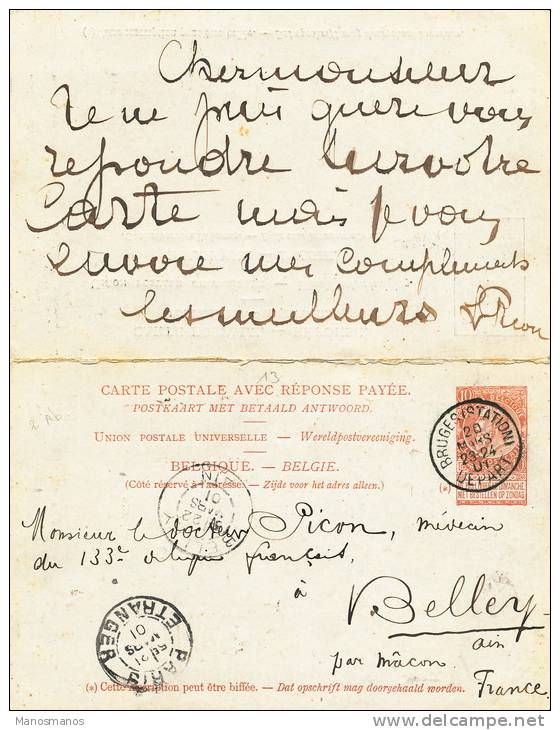 Cher monsieur
Je ne puis guere vous
repondre sur votre
Carte mais je vous
envoie mes complements
les meilleurs Picon
13
CARTE POSTALE AVEC RÉPONSE PAYÉE.
POSTKAART MET BETAALD ANTWOORD.
UNION POSTALE UNIVERSELLE – Wereldpostvereeniging.
BELGIQUE – BELGIE.
(Côté réservé à l'adresse. – Zijde voor het adres alleen.)
10
BRUGES (STATION)
20
MARS
23-24
01
DEPART
NIET BESTELLEN OP ZONDAG
Monsieur le docteur Picon, médecin
du 133e de ligne français,
à
Belley
ain
par Mâcon
France
MARS
01
PARIS
ETRANGER
21
MARS
01
(*) Cette inscription peut être biffée. – Dat opschrift mag doorgehaald worden.
Manosmanos
www.delcampe.net